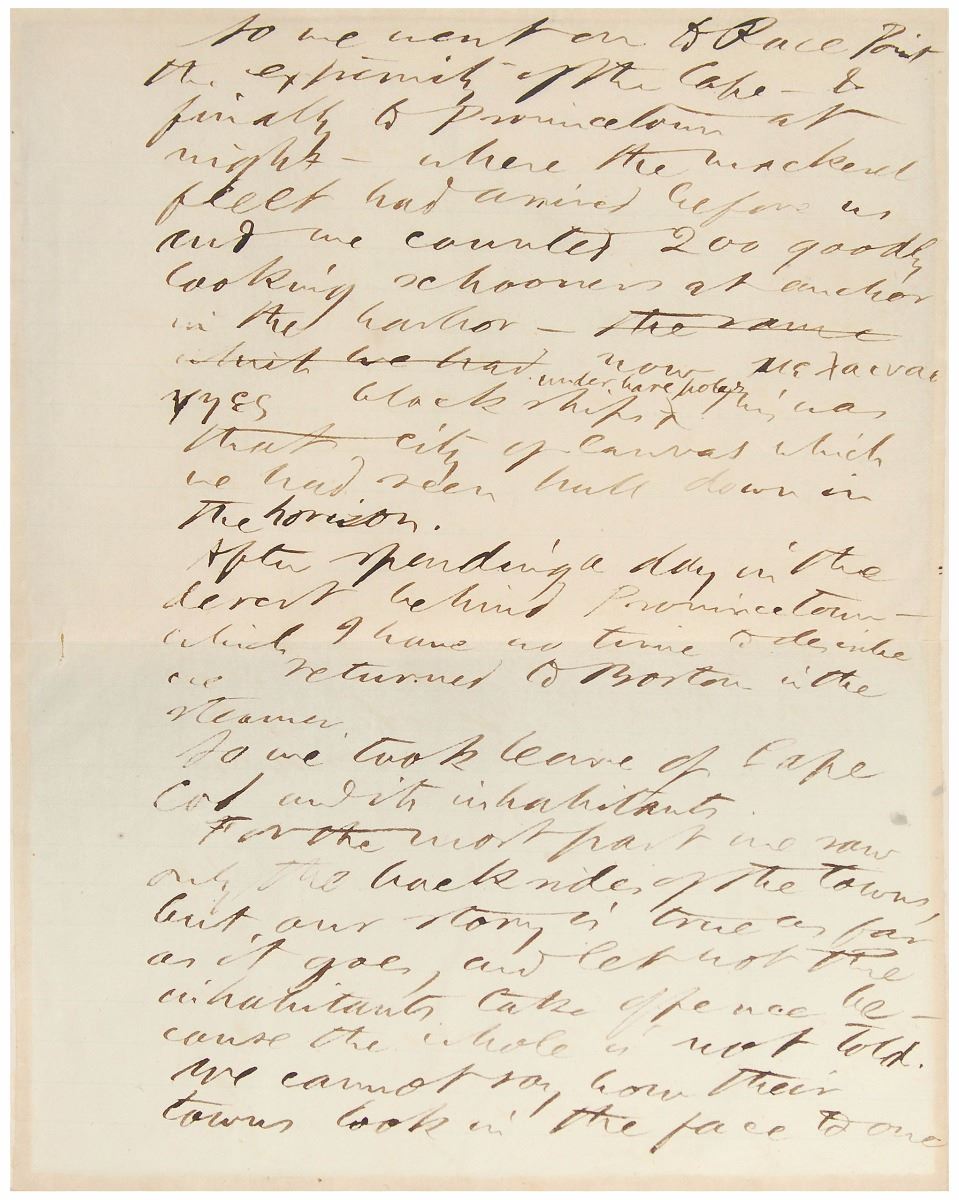 So we went on to Race Point
the extremity of the Cape – &
finally to Provincetown at
night – where the mackerel
fleet had arrived before us
and we counted 200 goodly
looking schooners at anchor
in the harbor – the same
which we had now
under bare poles
black ships This was
that city of canvas which
we had seen hull down in
the horison.
After spending a day in the
desert behind Provincetown –
which I have no time to describe
we returned to Boston in the
steamer.
So we took leave of Cape
Cod and its inhabitants.
For the most part we saw
only the back sides of the towns,
but our story is true as far
as it goes, and let not the
inhabitants take offence be-
cause the whole is not told.
We cannot say how their
towns look in the face to one